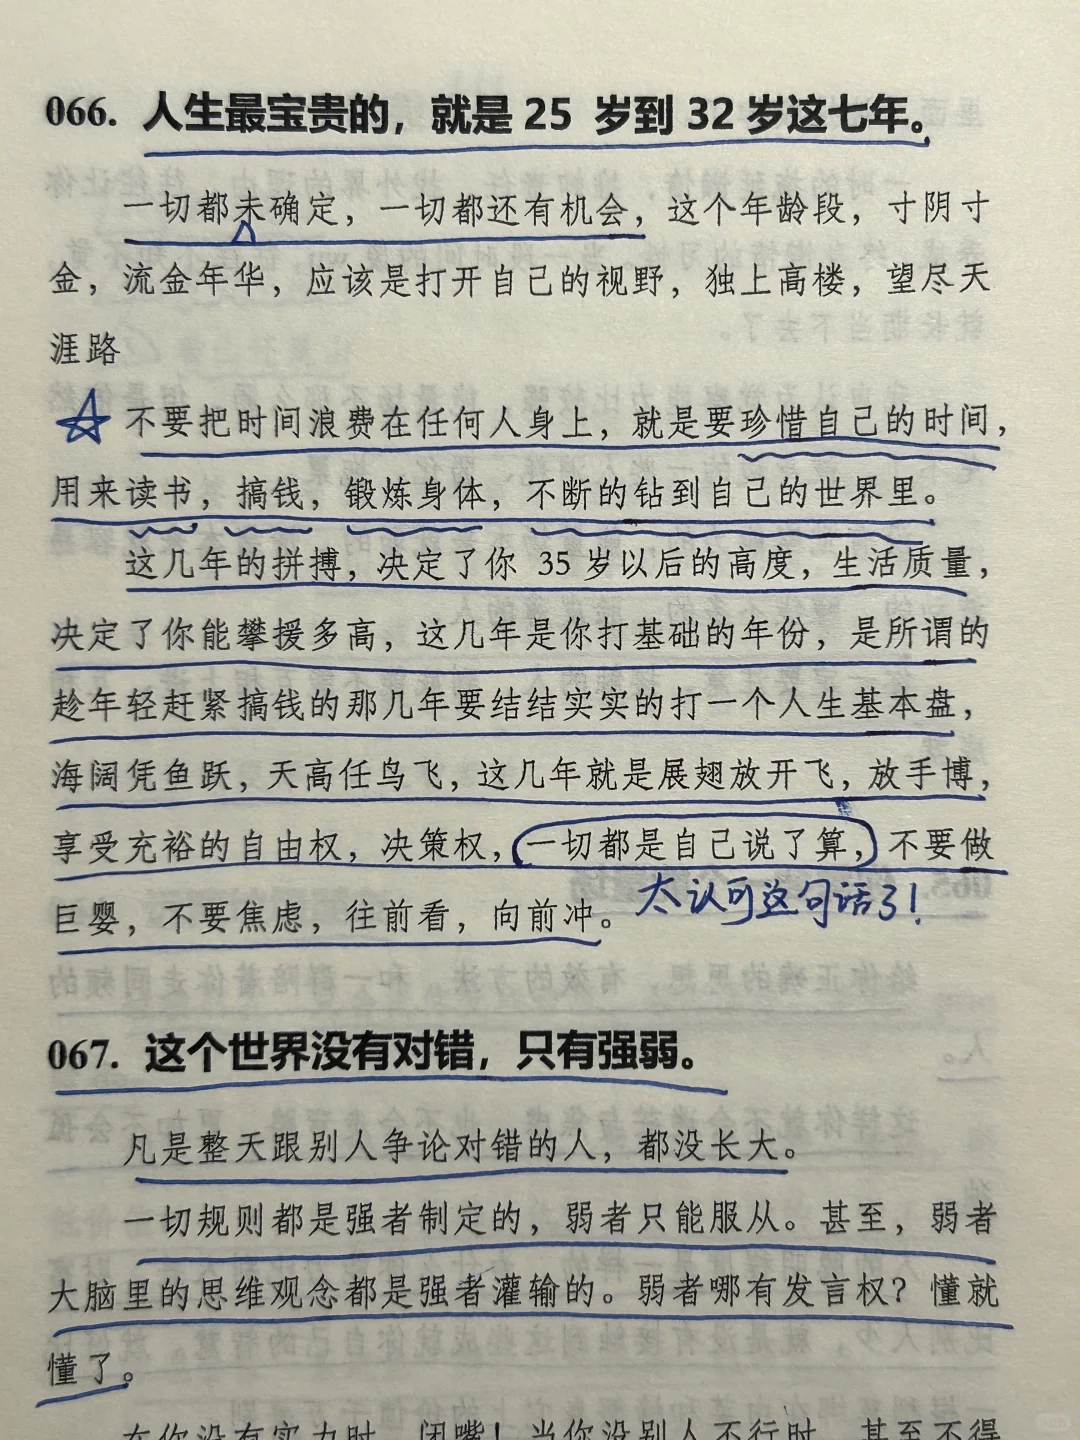 066. 人生最宝贵的，就是 25 岁到 32 岁这七年。
一切都未确定，一切都还有机会，这个年龄段，寸阴寸
金，流金年华，应该是打开自己的视野，独上高楼，望尽天
涯路
不要把时间浪费在任何人身上，就是要珍惜自己的时间，
用来读书，搞钱，锻炼身体，不断的钻到自己的世界里。
这几年的拼搏，决定了你 35 岁以后的高度，生活质量，
决定了你能攀援多高，这几年是你打基础的年份，是所谓的
趁年轻赶紧搞钱的那几年要结结实实的打一个人生基本盘，
海阔凭鱼跃，天高任鸟飞，这几年就是展翅放开飞，放手博，
享受充裕的自由权，决策权，一切都是自己说了算，不要做
太认可这句话了！
巨婴，不要焦虑，往前看，向前冲。
067. 这个世界没有对错，只有强弱。
凡是整天跟别人争论对错的人，都没长大。
一切规则都是强者制定的，弱者只能服从。甚至，弱者
大脑里的思维观念都是强者灌输的。弱者哪有发言权？懂就
懂了。
在你没有实力时，闭嘴！当你没别人不行时，甚至不得